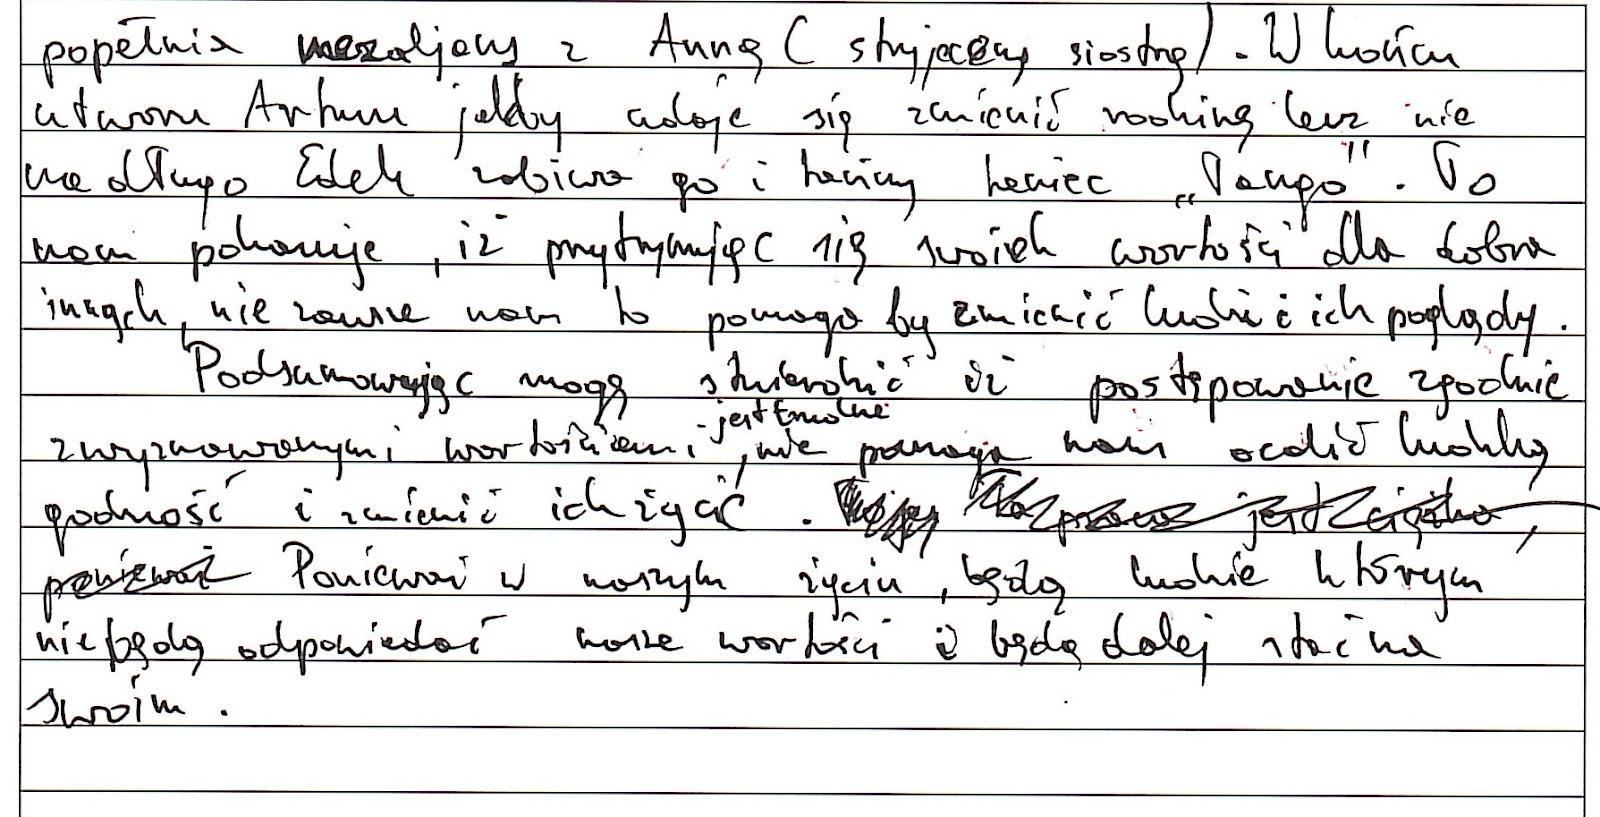 popełnia mezaljans z Anną ( stryjeczną siostrą). W końcu
utworu Artur jakby udaje się zmienić rodzinę lecz nie
na długo Edek zabiwa go i tańczy taniec „Tango". To
nam pokazuje, iż przytrzymując się swoich wartości dla dobra
innych, nie zawsze nam to pomaga by zmienić ludzi i ich poglądy.
Podsumowując mogę stwierdzić iż postępowanie zgodnie
z wyznawanymi wartościami jest trudne, nie pomaga nam ocalić ludzką
godność i zmienić ich życić .
Ponieważ w naszym życiu , będą ludzie którym
nie będą odpowiedać nasze wartości i będą dalej stać na
swoim .